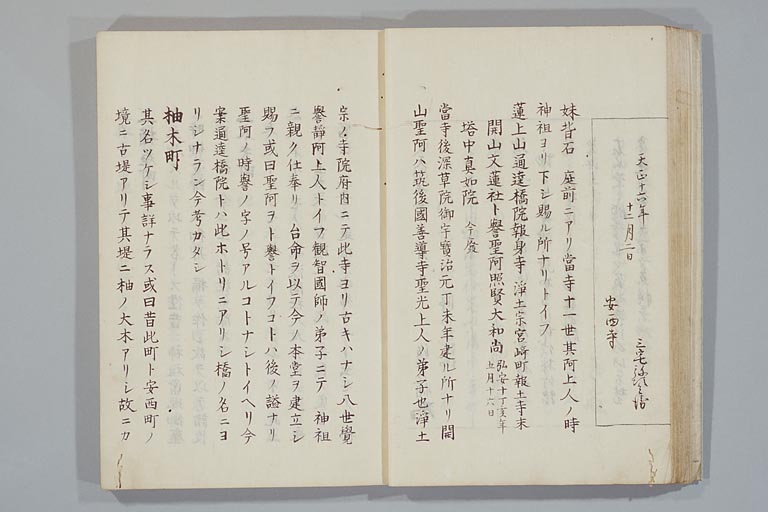 天正十六年
十一月二日
三宅弥次郎
安西寺
妹背石 庭前ニアリ當寺十一世其阿上人ノ時
神祖ヨリ下シ賜ル所ナリトイフ
蓮上山通達橋院報身寺 淨土宗宮崎町報土寺末
開山文蓮社ト譽聖阿照賢大和尚 弘安十丁亥年五月十六日
塔中真如院 今廢
當寺後深草院御宇寳治元丁未年建ル所ナリ開
山聖阿ハ筑後國善導寺聖光上人ノ弟子也淨土
宗ノ寺院府内ニテ此寺ヨリ古キハナシ八世覺
譽靜阿上人トイフ觀智國師ノ弟子ニテ 神祖
ニ親ク仕奉リ 台命ヲ以テ今ノ本堂ヲ建立シ
賜フ或曰聖阿ヲト譽トイフコトハ後ノ謚ナリ
聖阿ノ時譽ノ字ノ号アルコトナシトイヘリ今
案通達橋院トハ此ホトリニアリシ橋ノ名ニヨ
リシナラン今考カタシ
柚木町
其名ツケシ事詳ナラス或曰昔此町ト安西町ノ
境ニ古堤アリテ其堤ニ柚ノ大木アリシ故ニカ